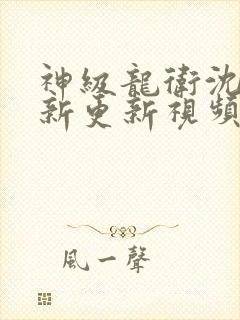 神級龍衛沈
新更新視頻
風一聲